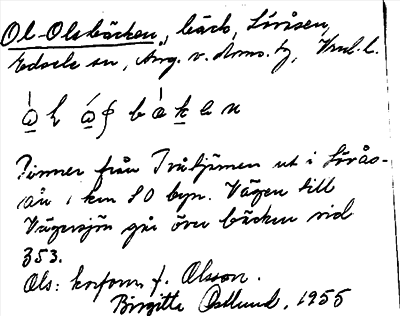 Ol-Olsbäcken, bäck, Lövåsen,
Edsele sn, Ång. v. doms. hg, Vnl. l.
Rinner från Tvåtjärnen ut i Lövås-
ån 1 km SO byn. Vägen till
Vägersjön går över bäcken vid
353.
Ols: kortform f. Olsson.
Birgitta Östlund, 1955